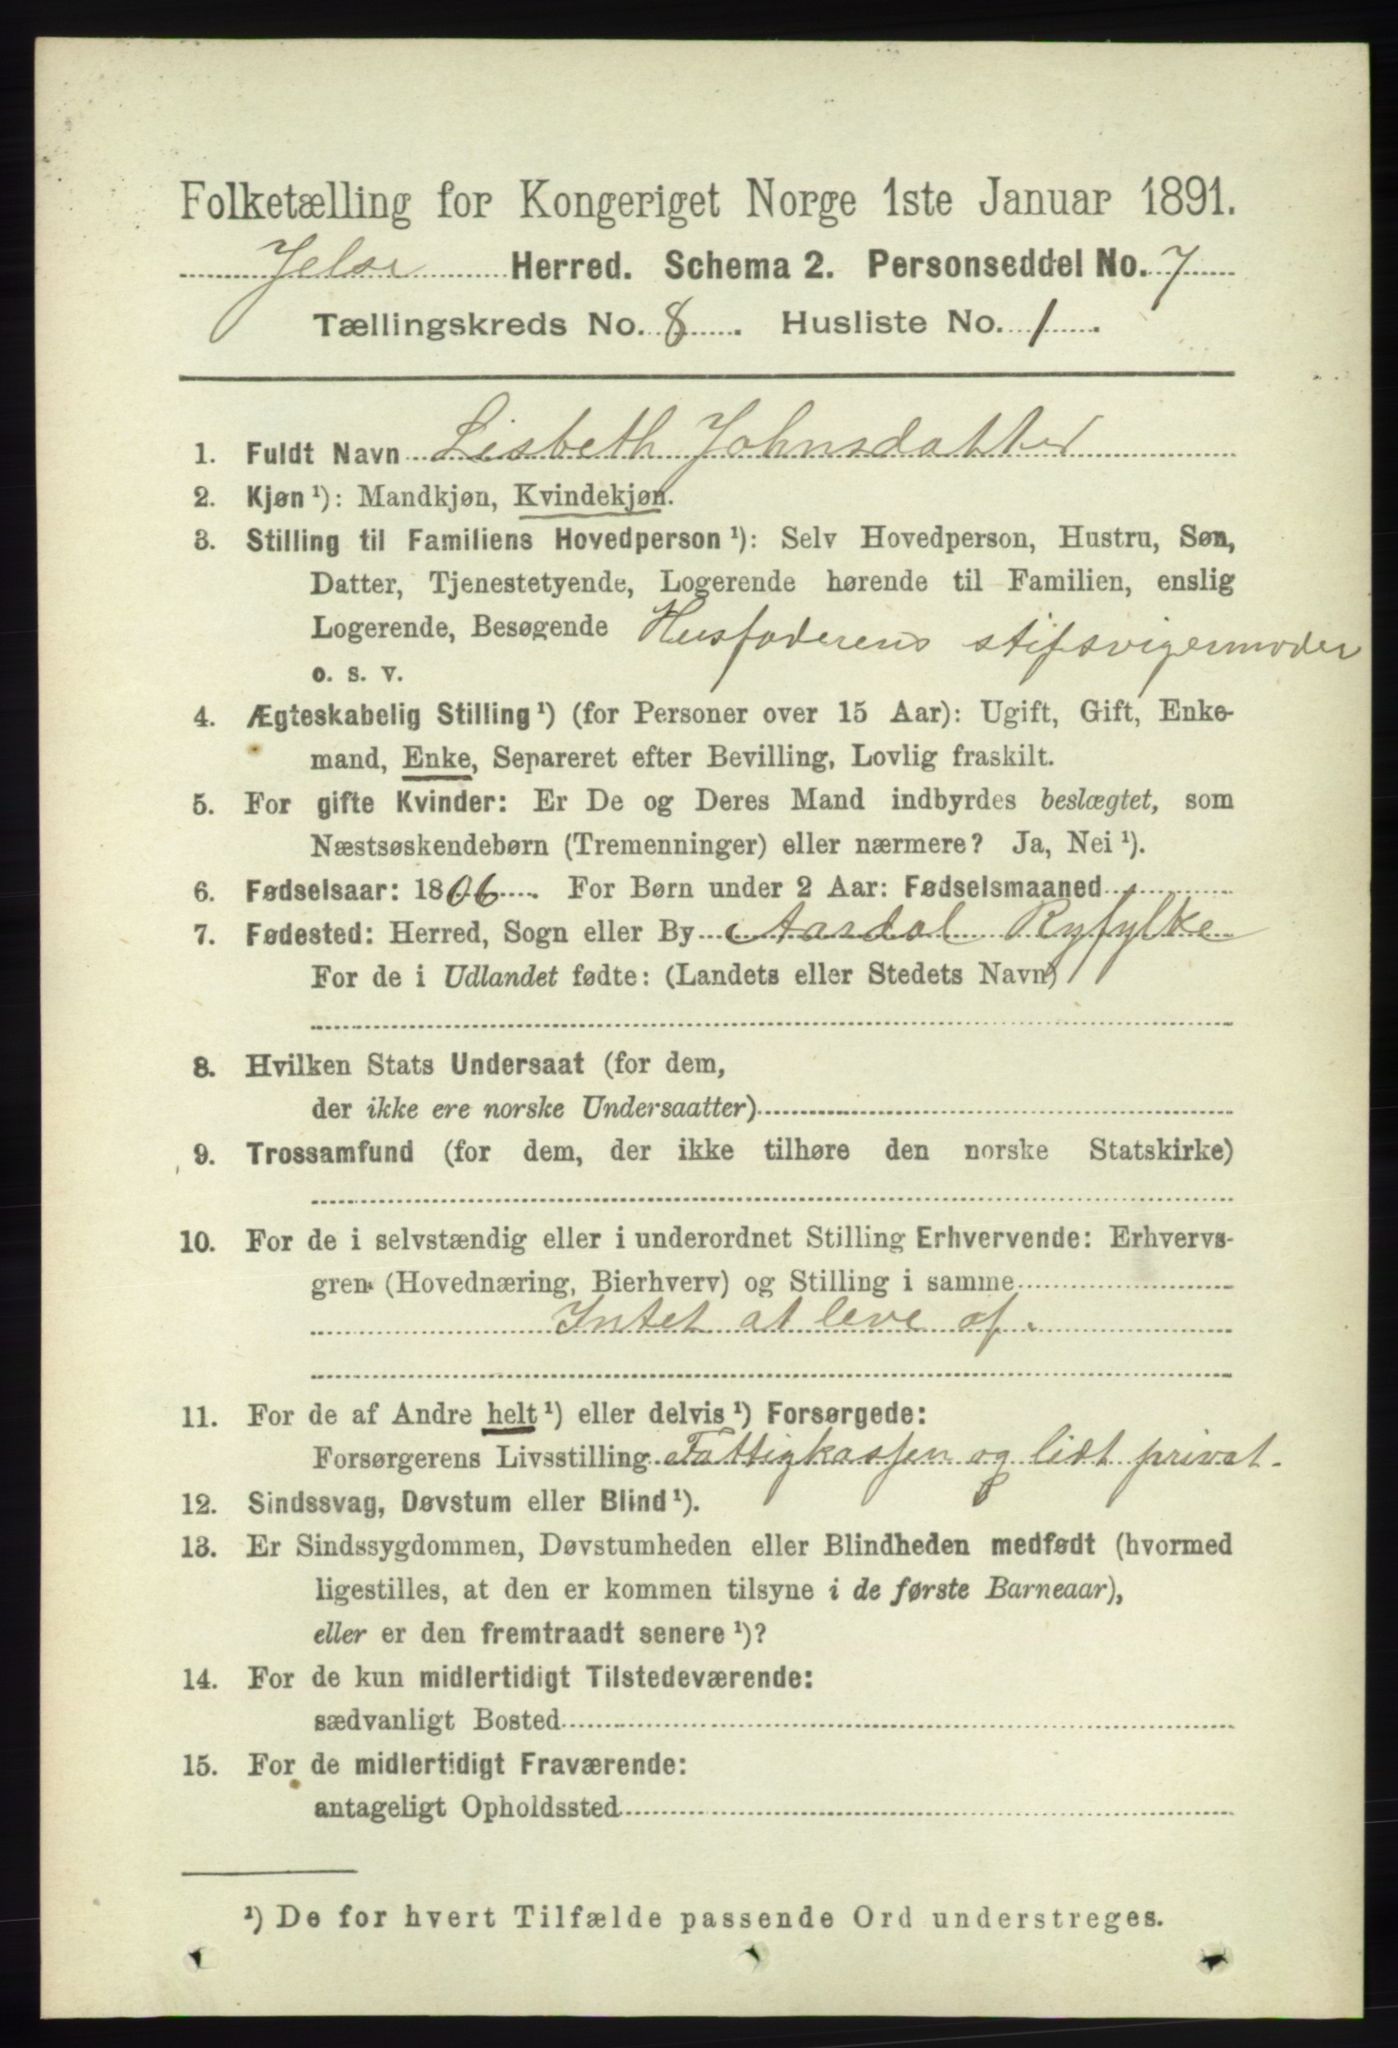 Folketælling for Kongeriget Norge 1ste Januar 1891.
Jelse Herred. Schema 2. Personseddel No. 7
Tællingskreds No. 8. Husliste No. 1.
1. Fuldt Navn Lisbeth Johnsdatter
2. Kjøn ¹): Mandkjøn, Kvindekjøn.
3. Stilling til Familiens Hovedperson ¹): Selv Hovedperson, Hustru, Søn,
Datter, Tjenestetyende, Logerende hørende til Familien, enslig
Logerende, Besøgende Husfaderens stifsvigermoder
o. s. v.
4. Ægteskabelig Stilling ¹) (for Personer over 15 Aar): Ugift, Gift, Enke-
mand, Enke, Separeret efter Bevilling, Lovlig fraskilt.
5. For gifte Kvinder: Er De og Deres Mand indbyrdes beslægtet, som
Næstsøskendebørn (Tremenninger) eller nærmere? Ja, Nei ¹).
6. Fødselsaar: 1806. For Børn under 2 Aar: Fødselsmaaned
7. Fødested: Herred, Sogn eller By Aardal Ryfylke
For de i Udlandet fødte: (Landets eller Stedets Navn)
8. Hvilken Stats Undersaat (for dem,
der ikke ere norske Undersaatter)
9. Trossamfund (for dem, der ikke tilhøre den norske Statskirke)
10. For de i selvstændig eller i underordnet Stilling Erhvervende: Erhvervs-
gren (Hovednæring, Bierhverv) og Stilling i samme
Intet at leve af.
11. For de af Andre helt ¹) eller delvis ¹) Forsørgede:
Forsørgerens Livsstilling Fattigkassen og lidt privat.
12. Sindssvag, Døvstum eller Blind ¹).
13. Er Sindssygdommen, Døvstumheden eller Blindheden medfødt (hvormed
ligestilles, at den er kommen tilsyne i de første Barneaar),
eller er den fremtraadt senere ¹)?
14. For de kun midlertidigt Tilstedeværende:
sædvanligt Bosted
15. For de midlertidigt Fraværende:
antageligt Opholdssted
¹) De for hvert Tilfælde passende Ord understreges.